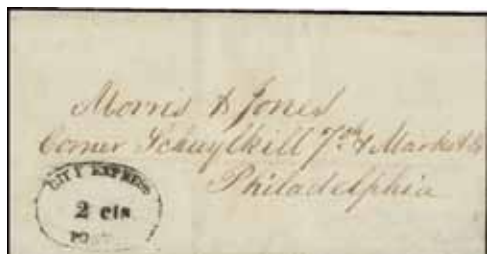 Morris & Jones
Corner Schuylkill 7th & Market St
Philadelphia
CITY EXPRESS
2 cts